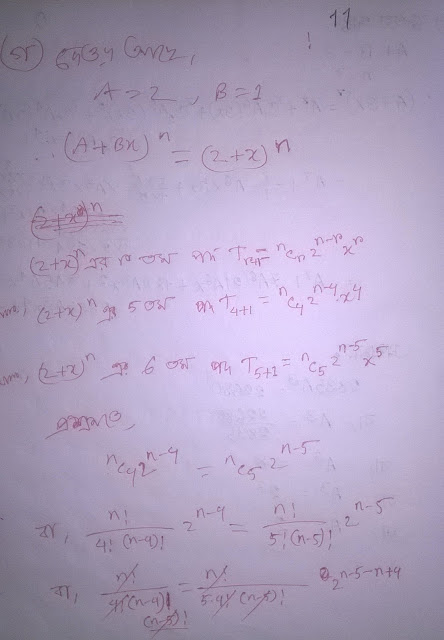 11
(গ) দেওয়া আছে,
A = 2, B = 1
(A+Bx)^n = (2+x)^n
(2+x)^n এর r তম পদ T_{r+1} = ^nC_r 2^{n-r} x^r
(2+x)^n এর 5 তম পদ T_{4+1} = ^nC_4 2^{n-4} . x^4
(2+x)^n এর 6 তম পদ T_{5+1} = ^nC_5 2^{n-5} x^5
প্রশ্নমতে,
^nC_4 2^{n-4} = ^nC_5 2^{n-5}
বা, n!/4!(n-4)! 2^{n-4} = n!/5!(n-5)! 2^{n-5}
বা, n!/4!(n-4)(n-5)! = n!/5.4!(n-5)! 2^{n-5-n+4}